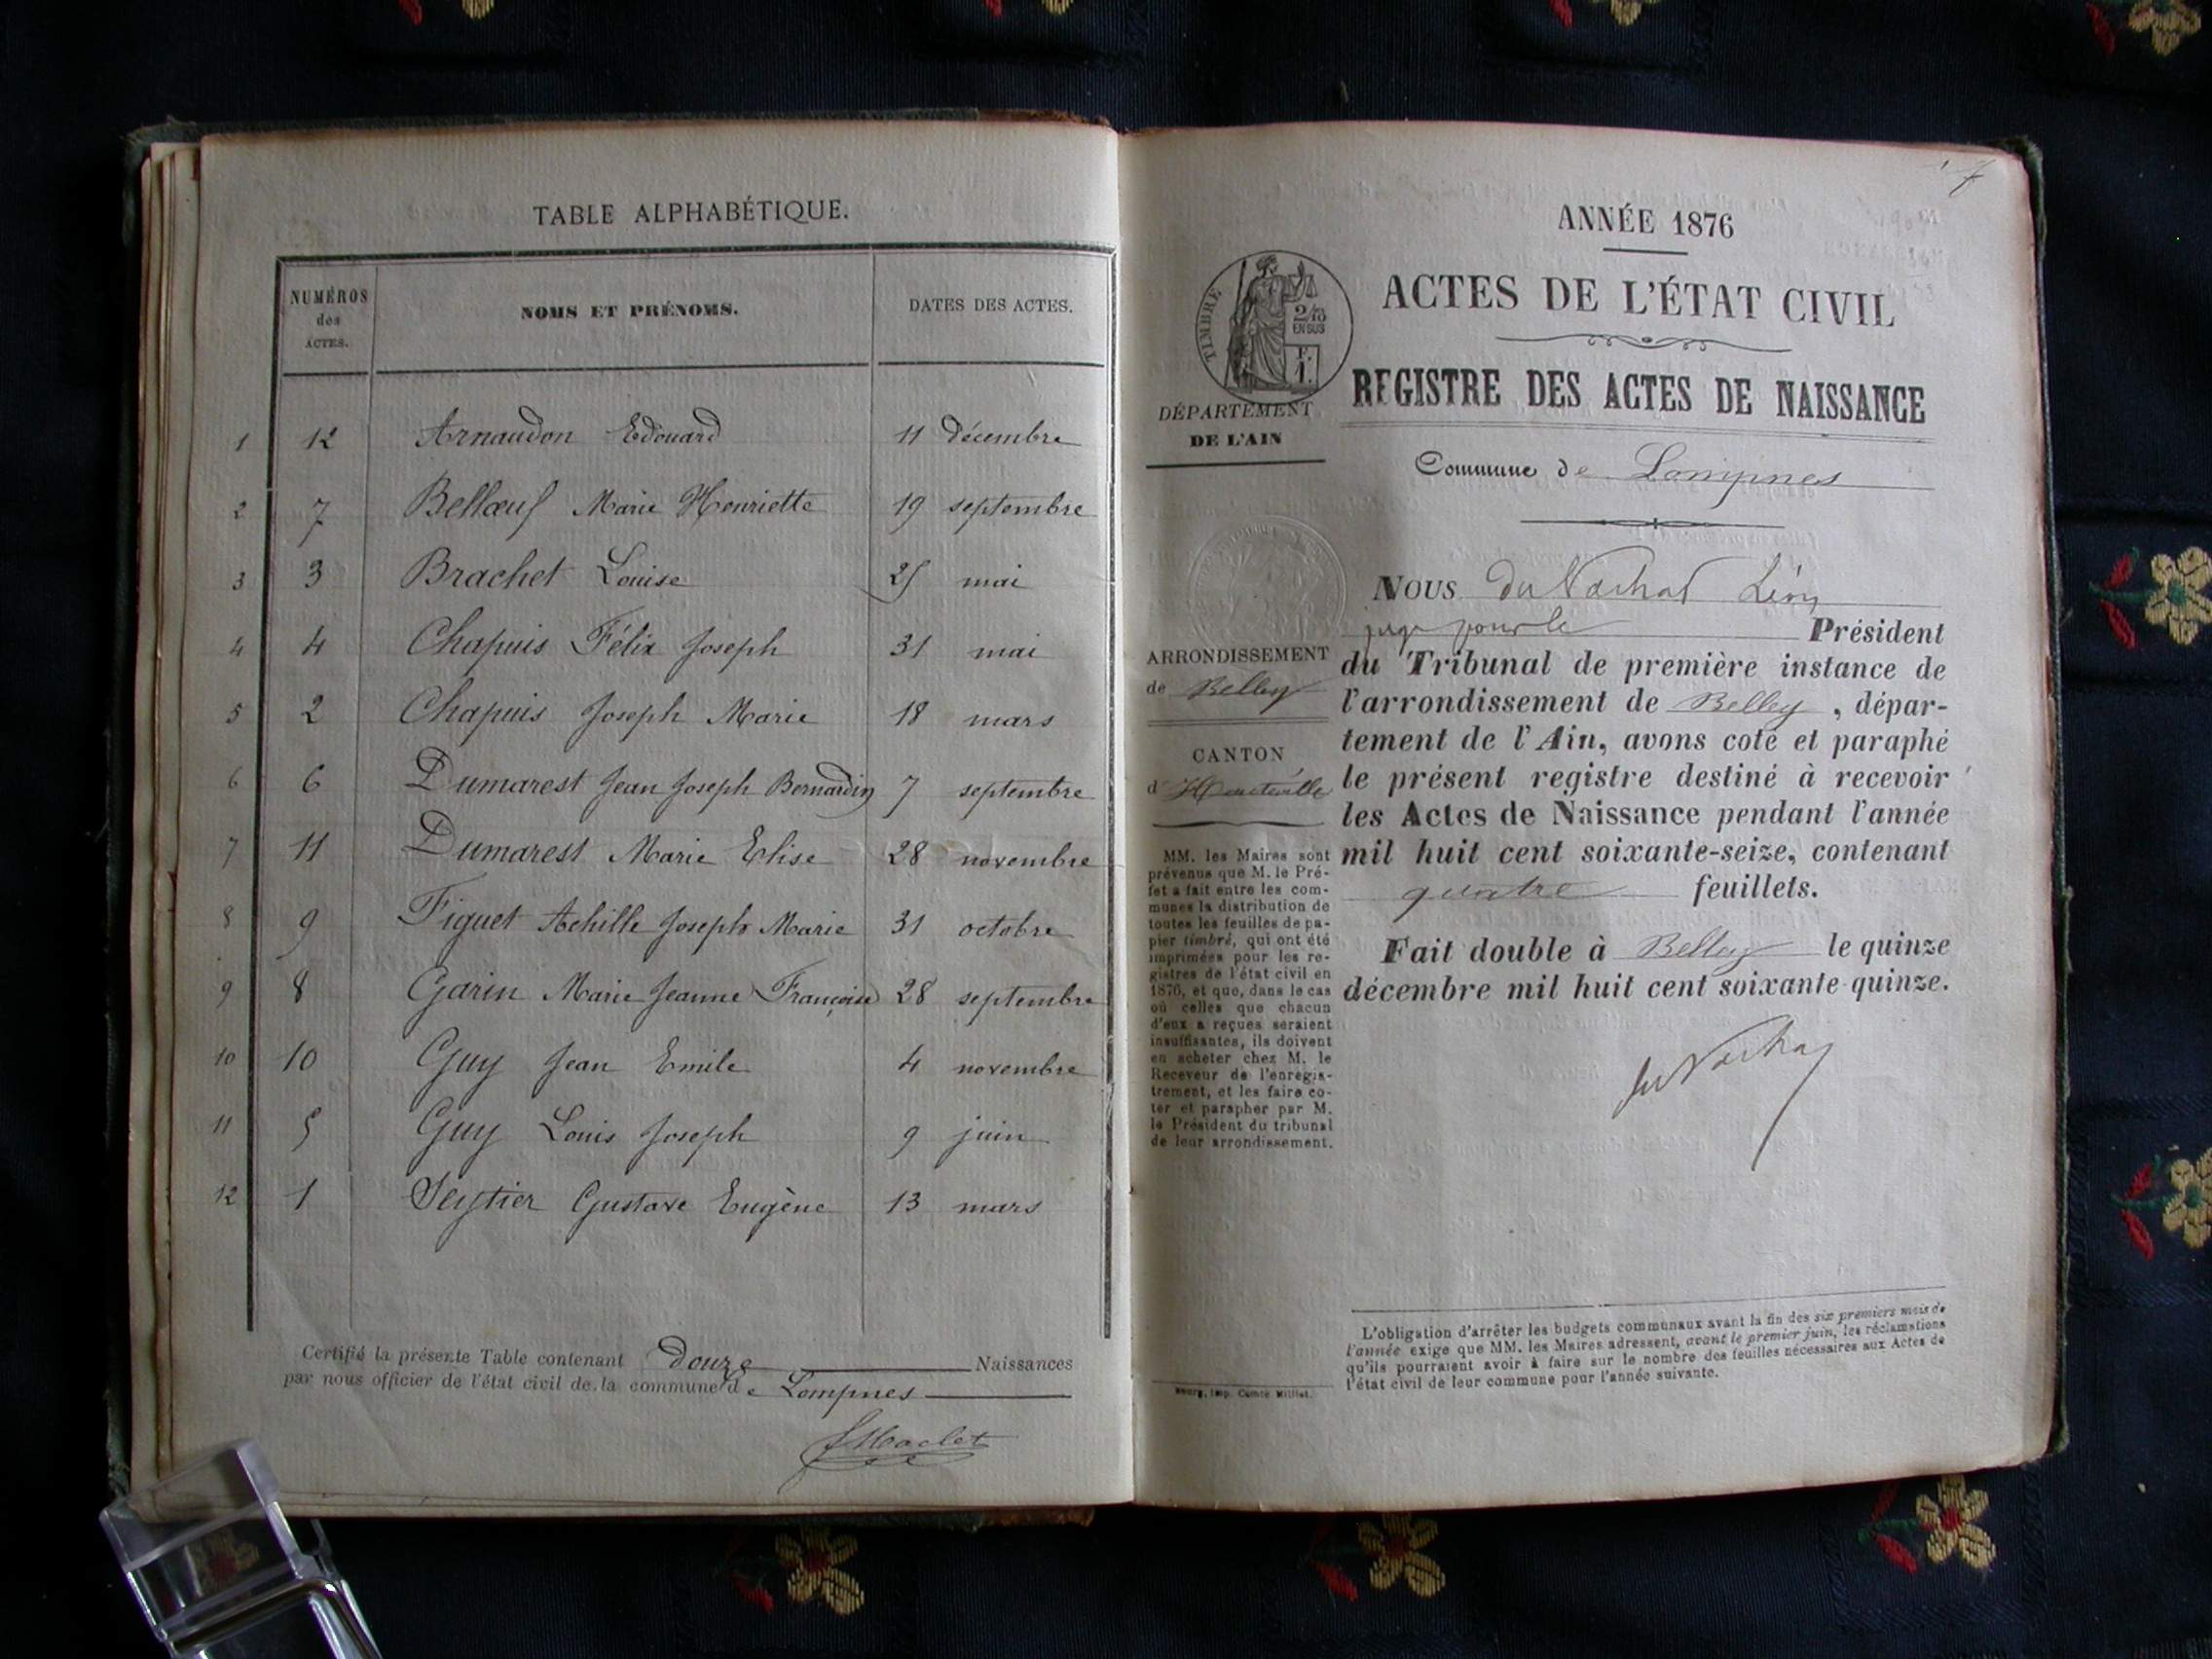 TABLE ALPHABÉTIQUE.
NUMÉROS des ACTES. NOMS ET PRÉNOMS. DATES DES ACTES.
1 12 Arnaudon Edouard 11 décembre
2 7 Bellœuf Marie Henriette 19 septembre
3 3 Brachet Louise 25 mai
4 4 Chapuis Félix Joseph 31 mai
5 2 Chapuis Joseph Marie 18 mars
6 6 Dumarest Jean Joseph Bernardin 7 septembre
7 11 Dumarest Marie Elise 28 novembre
8 9 Figuet Achille Joseph Marie 31 octobre
9 8 Garin Marie Jeanne Françoise 28 septembre
10 10 Guy Jean Emile 4 novembre
11 5 Guy Louis Joseph 9 juin
12 1 Seytier Gustave Eugène 13 mars
Certifié la présente Table contenant douze Naissances
par nous officier de l'état civil de la commune de Lompnes
7
ANNÉE 1876
ACTES DE L'ÉTAT CIVIL
REGISTRE DES ACTES DE NAISSANCE
Commune de Lompnes
TIMBRE
2/10
EN SUS
DÉPARTEMENT
DE L'AIN
ARRONDISSEMENT
de Belley
CANTON
d'Hauteville
MM. les Maires sont
prévenus que M. le Pré-
fet a fait entre les com-
munes la distribution de
toutes les feuilles de pa-
pier timbré, qui ont été
imprimées pour les re-
gistres de l'état civil en
1876, et que, dans le cas
où celles que chacun
d'eux a reçues seraient
insuffisantes, ils doivent
en acheter chez M. le
Receveur de l'enregis-
trement, et les faire co-
ter et parapher par M.
le Président du tribunal
de leur arrondissement.
Bourg, Imp. Comte Milliet.
NOUS du Nachat Léon
juge pour le Président
du Tribunal de première instance de
l'arrondissement de Belley, dépar-
tement de l'Ain, avons coté et paraphé
le présent registre destiné à recevoir
les Actes de Naissance pendant l'année
mil huit cent soixante-seize, contenant
quatre feuillets.
Fait double à Belley le quinze
décembre mil huit cent soixante-quinze.
L'obligation d'arrêter les budgets communaux avant la fin des six premiers mois de
l'année exige que MM. les Maires adressent, avant le premier juin, les réclamations
qu'ils pourraient avoir à faire sur le nombre des feuilles nécessaires aux Actes de
l'état civil de leur commune pour l'année suivante.